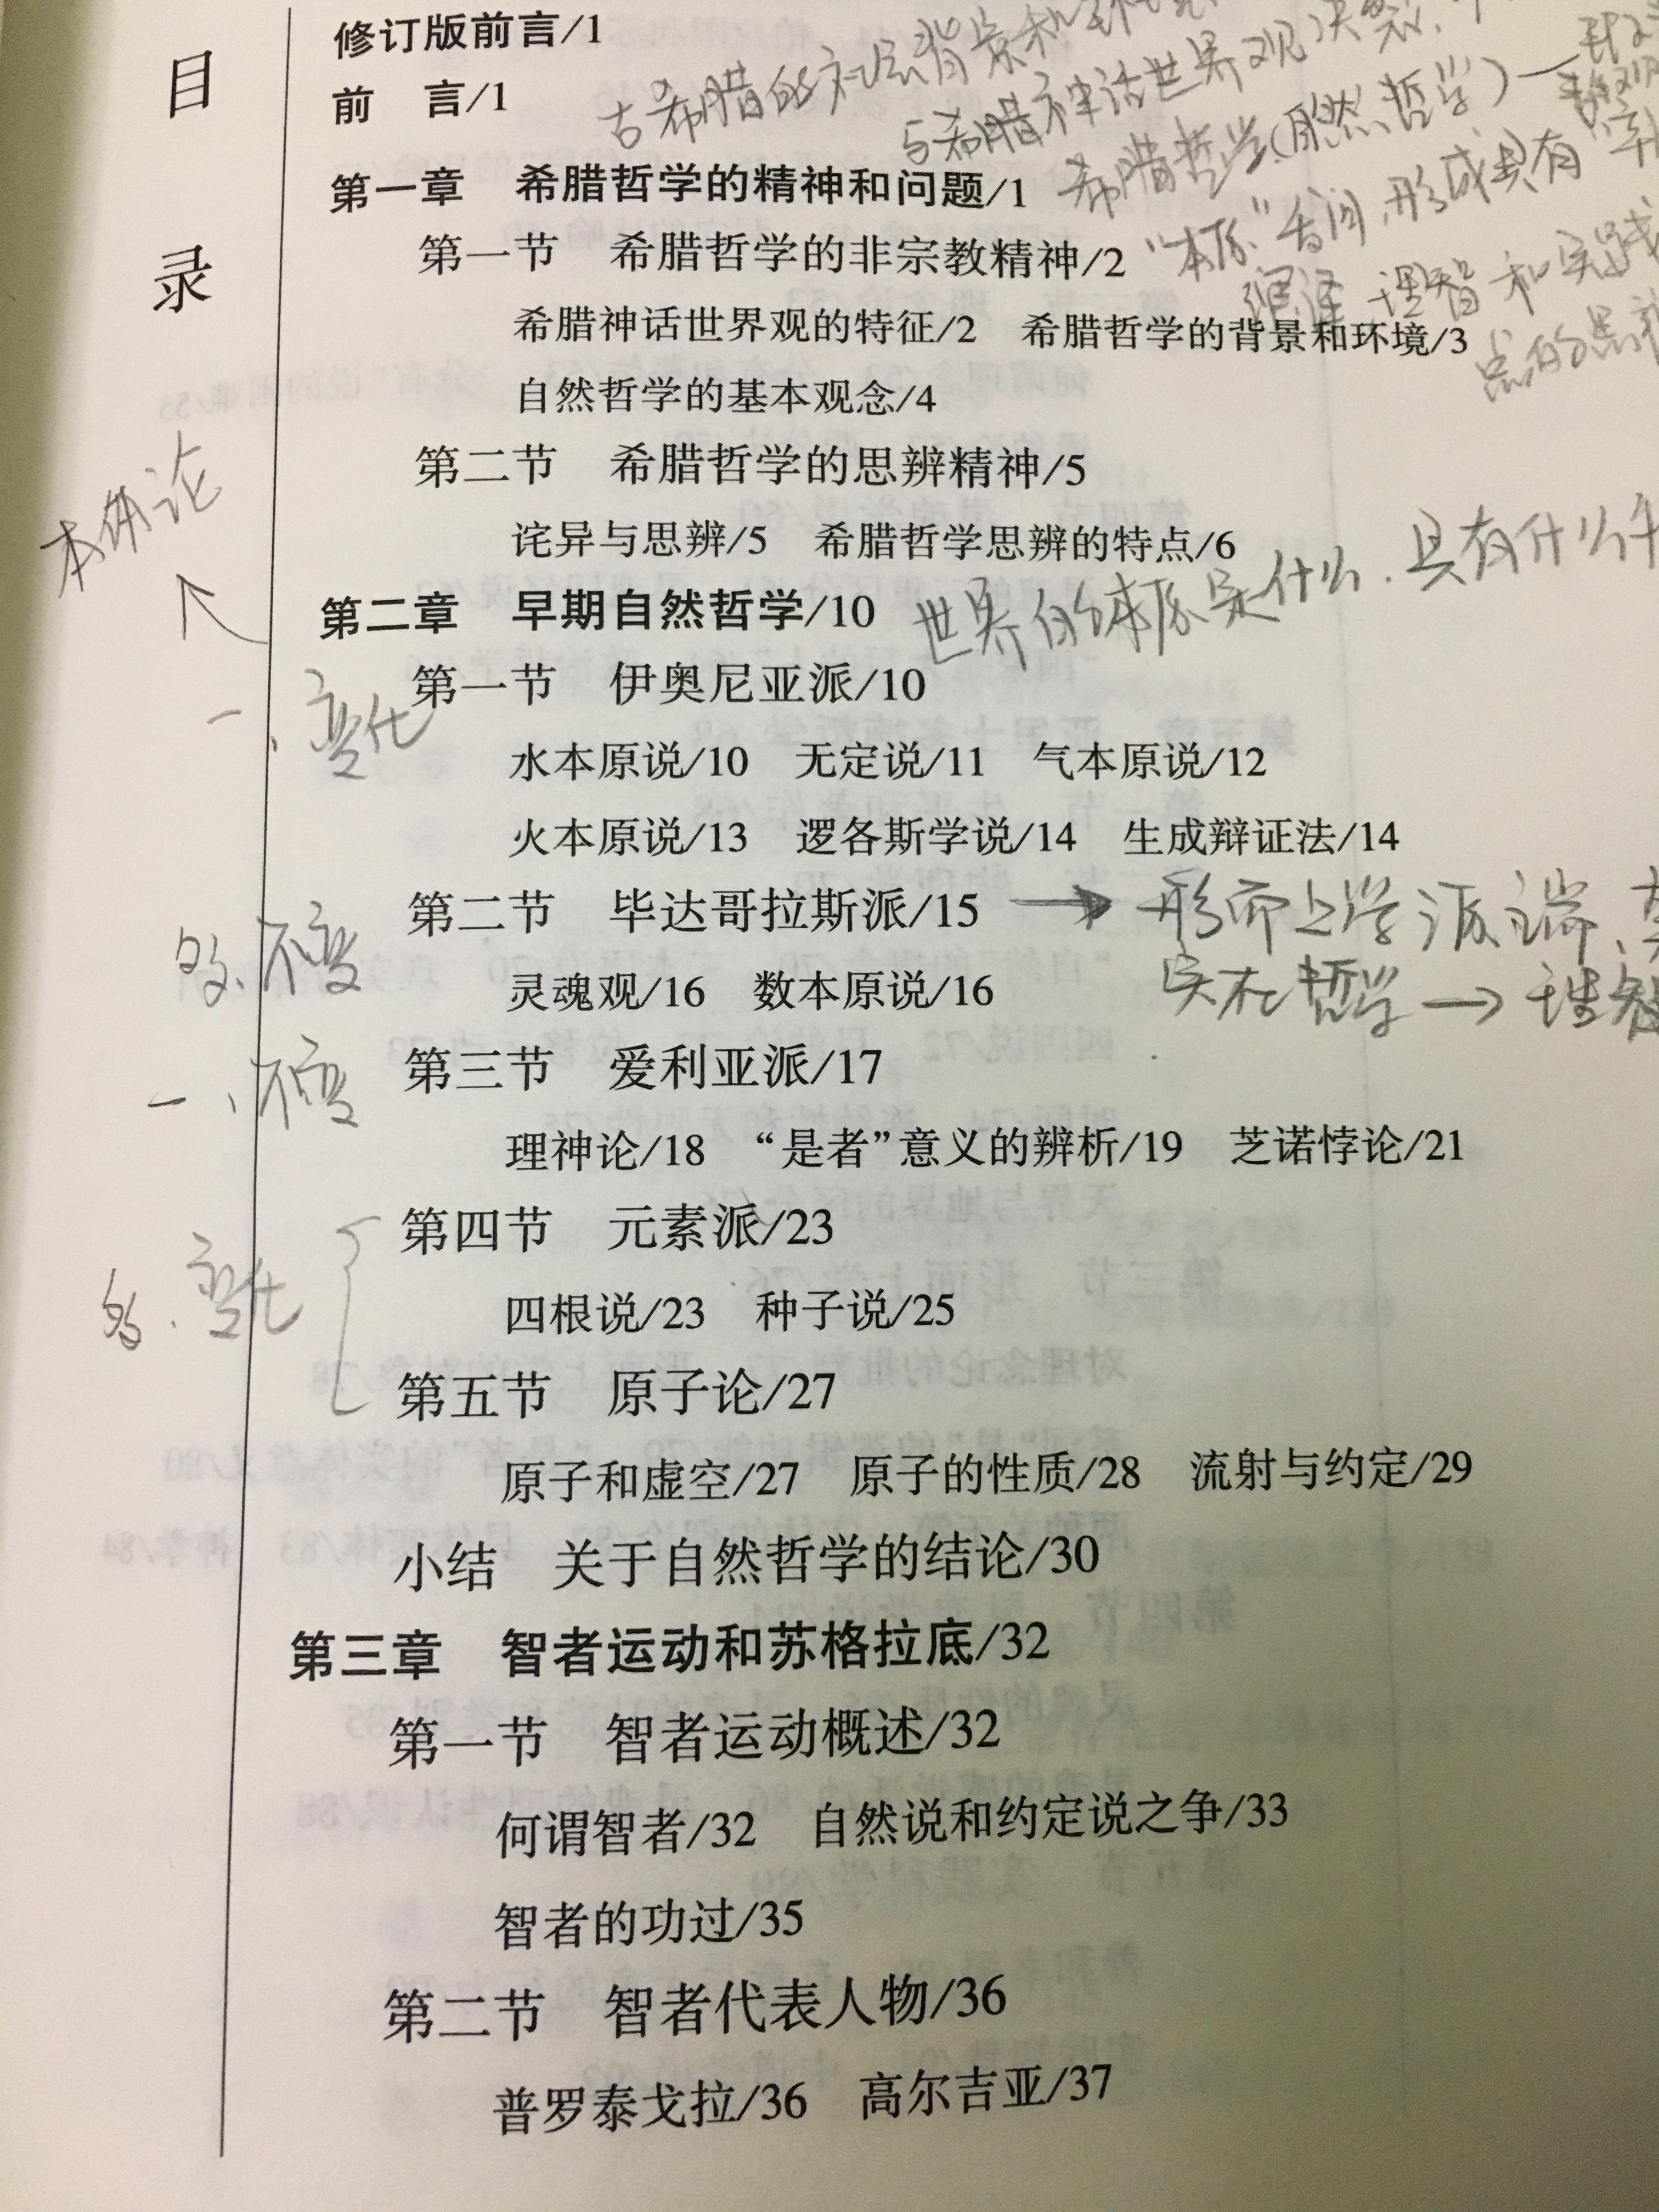 目录
修订版前言/1
前　言/1
古希腊的
与希腊神话世界观决裂
第一章　希腊哲学的精神和问题/1
希腊哲学(自然哲学)—
第一节　希腊哲学的非宗教精神/2
“本原”
形成具有
理智和实践
希腊神话世界观的特征/2　希腊哲学的背景和环境/3
点的
自然哲学的基本观念/4
第二节　希腊哲学的思辨精神/5
本体论
诧异与思辨/5　希腊哲学思辨的特点/6
第二章　早期自然哲学/10
世界的本原是什么.具有什么
第一节　伊奥尼亚派/10
一、变化
水本原说/10　无定说/11　气本原说/12
火本原说/13　逻各斯学说/14　生成辩证法/14
第二节　毕达哥拉斯派/15
→ 形而上学
多、不变
实在哲学→理
灵魂观/16　数本原说/16
第三节　爱利亚派/17
一、不变
理神论/18　“是者”意义的辨析/19　芝诺悖论/21
第四节　元素派/23
多、变化
四根说/23　种子说/25
第五节　原子论/27
原子和虚空/27　原子的性质/28　流射与约定/29
小结　关于自然哲学的结论/30
第三章　智者运动和苏格拉底/32
第一节　智者运动概述/32
何谓智者/32　自然说和约定说之争/33
智者的功过/35
第二节　智者代表人物/36
普罗泰戈拉/36　高尔吉亚/37